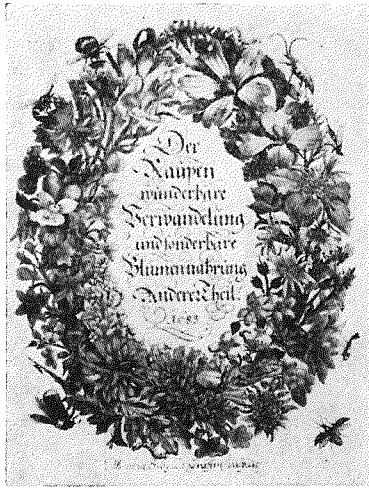 Der
Raupen
wunderbare
Verwandelung
und sonderbare
Blumennahrung
Anderer Theil.
1683